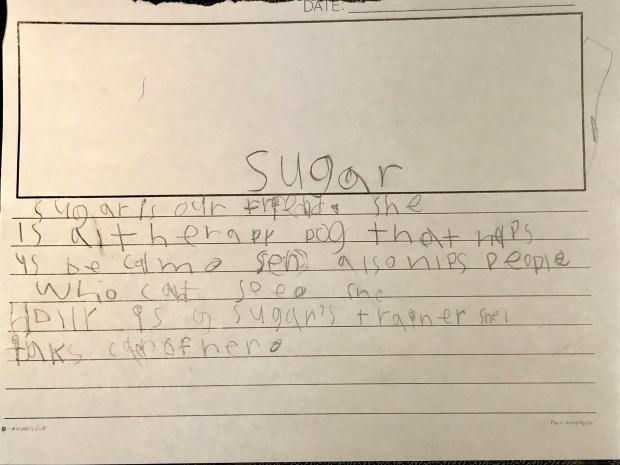 DATE:
Sugar
Sugar is our friend. She
is a therapy dog that hlps
us be calm. also hlps people
Who cat she
is a sugar's trainer she
taks car of her.